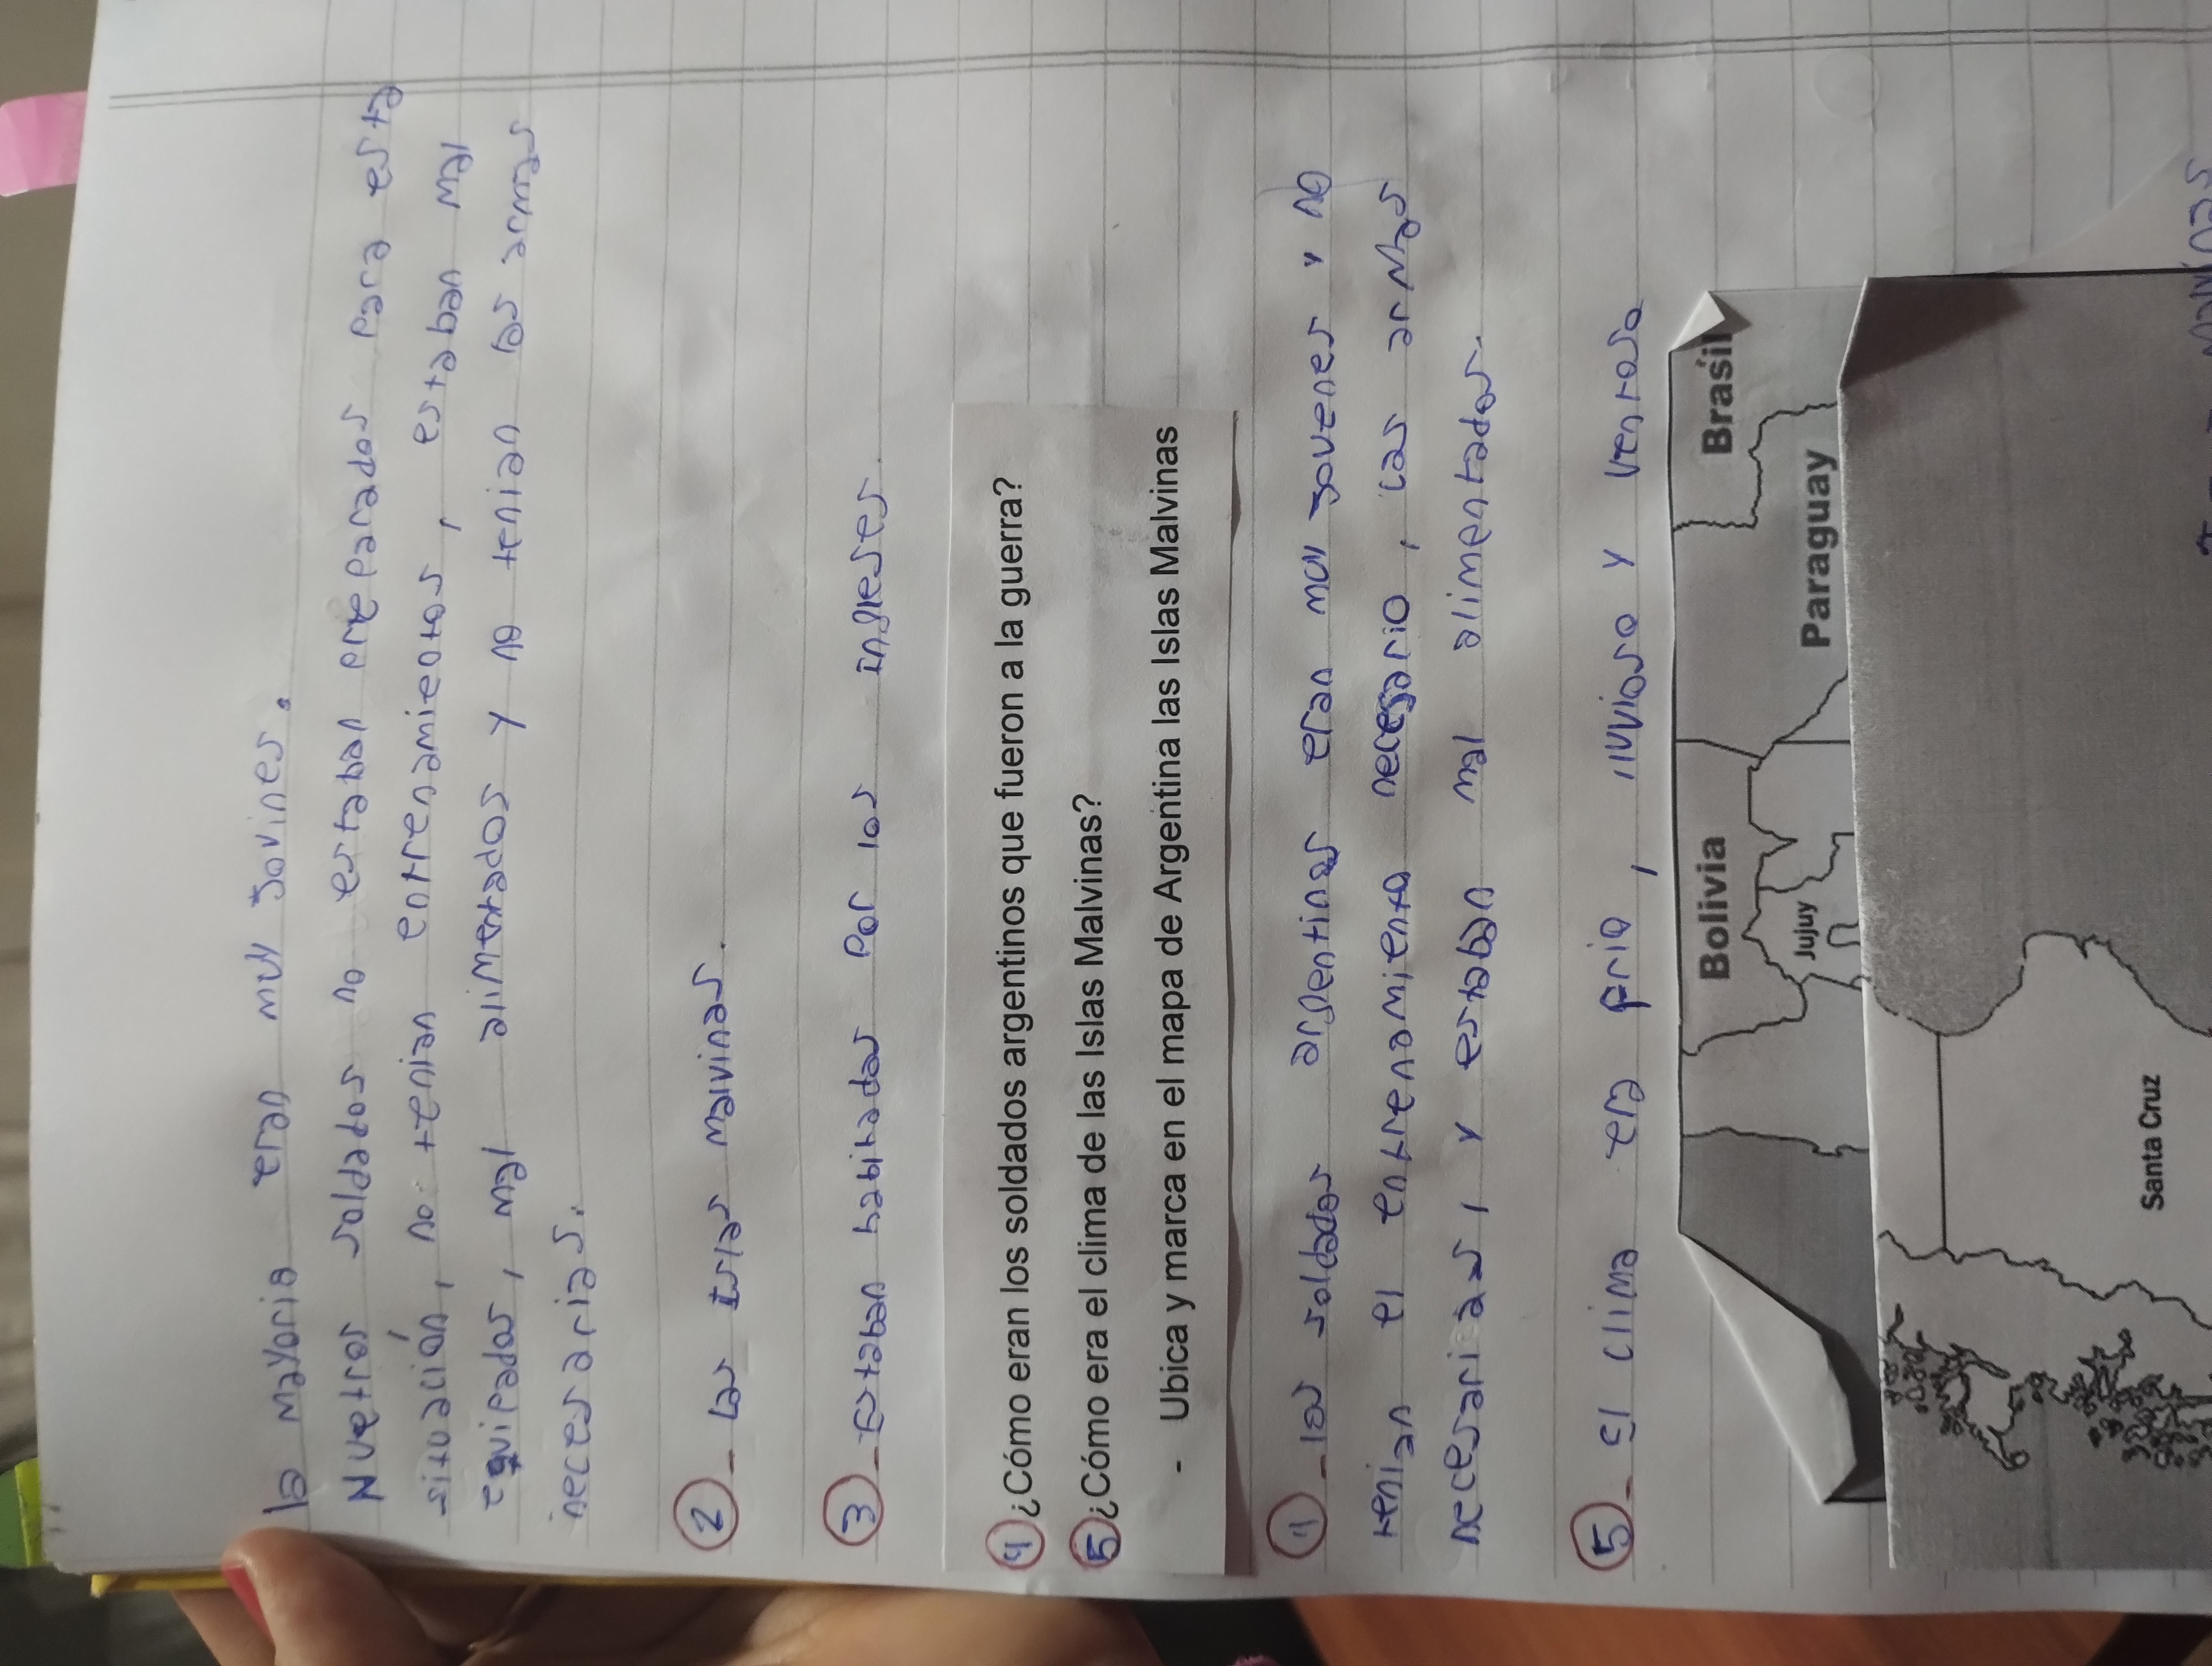 la mayoria eran muy jovines.
Nuetros soldados no estaban preparados para etsa
situación, no tenian entrenamientos, estaban mal
equipados, mal alimentados y no tenian las armas
necesarias.
2_ las Islas malvinas.
3_ Estaban habitadas por los inglesas.
4 ¿Cómo eran los soldados argentinos que fueron a la guerra?
5 ¿Cómo era el clima de las Islas Malvinas?
- Ubica y marca en el mapa de Argentina las Islas Malvinas
4_ los soldados argentinos eran muy jovenes y no
tenian el entrenamiento necesario, las armas
necesarias, y estaban mal alimentados.
5_ El clima era frio, lluvioso y ventoso
Bolivia Brasil
Jujuy Paraguay
Santa Cruz